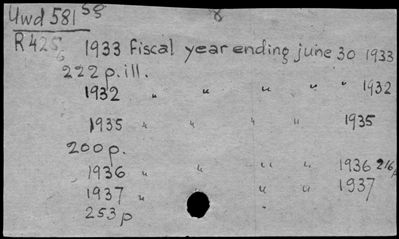 Uwd 581 58
R425 1933 Fiscal year ending june 30 1933
222 p. ill.
1932 " " " " " 1932
1935 " " " " 1935
200 p.
1936 " " " " 1936 216 p
1937 " " " 1937
253 p